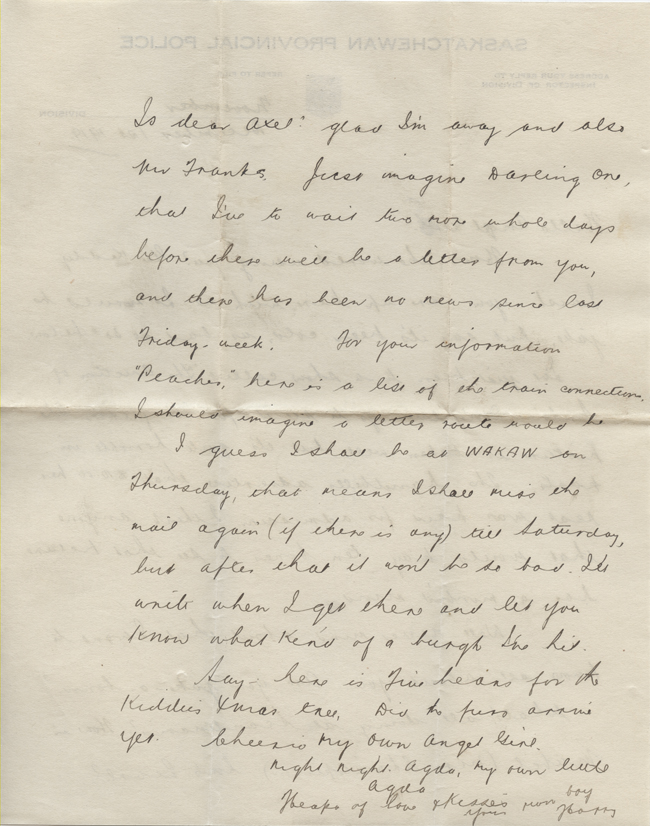 SASKATCHEWAN PROVINCIAL POLICE
DIVISION
So dear Axel: glad I'm away and also
Mr Franks. Just imagine Darling One,
that I've to wait two more whole days
before there will be a letter from you,
and there has been no news since last
Friday-week. For your information
"Peaches," here is a list of the train connections.
I should imagine a letter route would be
I guess I shall be at WAKAW on
Thursday, that means I shall miss the
mail again (if there is any) till Saturday,
but after that it won't be so bad. I'll
write when I get there and let you
know what kind of a burgh I've hit.
Say- here is Five beans for the
Kiddies Xmas tree. Did the furs arrive
yet. Cheerio My Own Angel Girl.
Night night. Agda, my own little
Agda
Heaps of love & Kisses your own boy
Harry